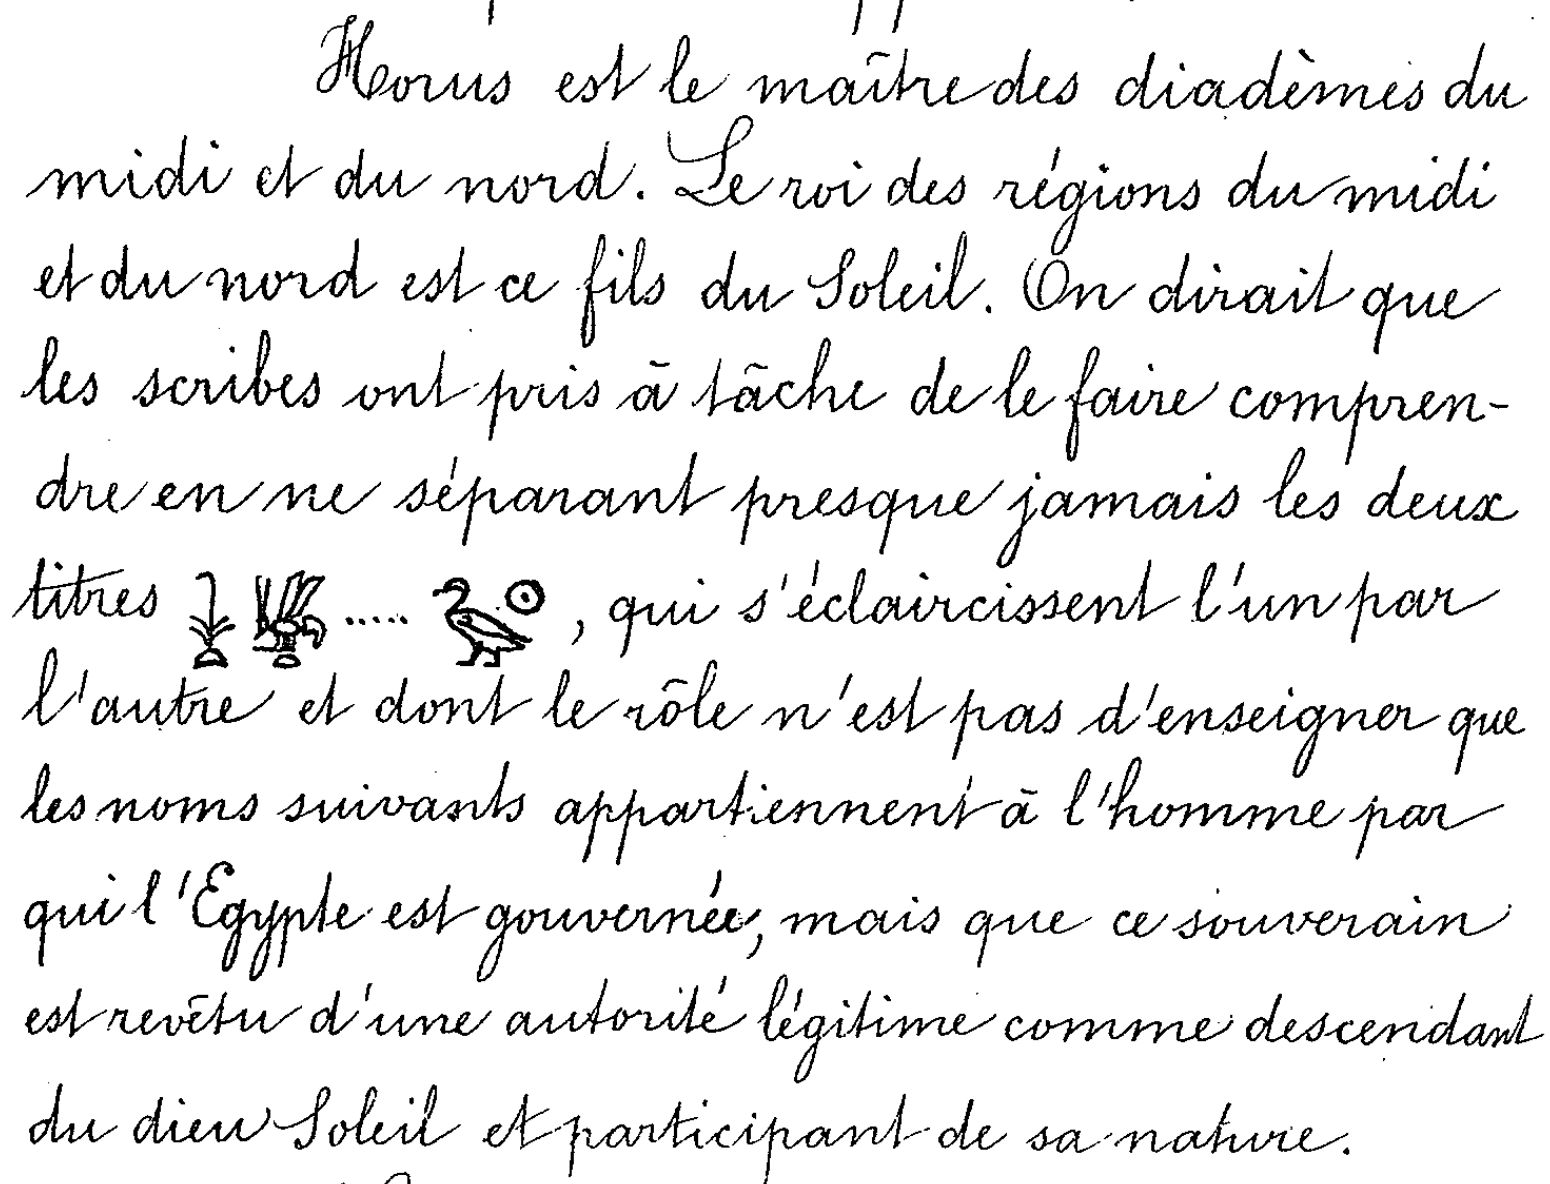 Horus est le maître des diadèmes du
midi et du nord. Le roi des régions du midi
et du nord est ce fils du Soleil. On dirait que
les scribes ont pris à tâche de le faire compren-
dre en ne séparant presque jamais les deux
titres 𓇓𓏏𓆤𓏏.....𓅭𓇳, qui s'éclaircissent l'un par
l'autre et dont le rôle n'est pas d'enseigner que
les noms suivants appartiennent à l'homme par
qui l'Egypte est gouvernée, mais que ce souverain
est revêtu d'une autorité légitime comme descendant
du dieu Soleil et participant de sa nature.